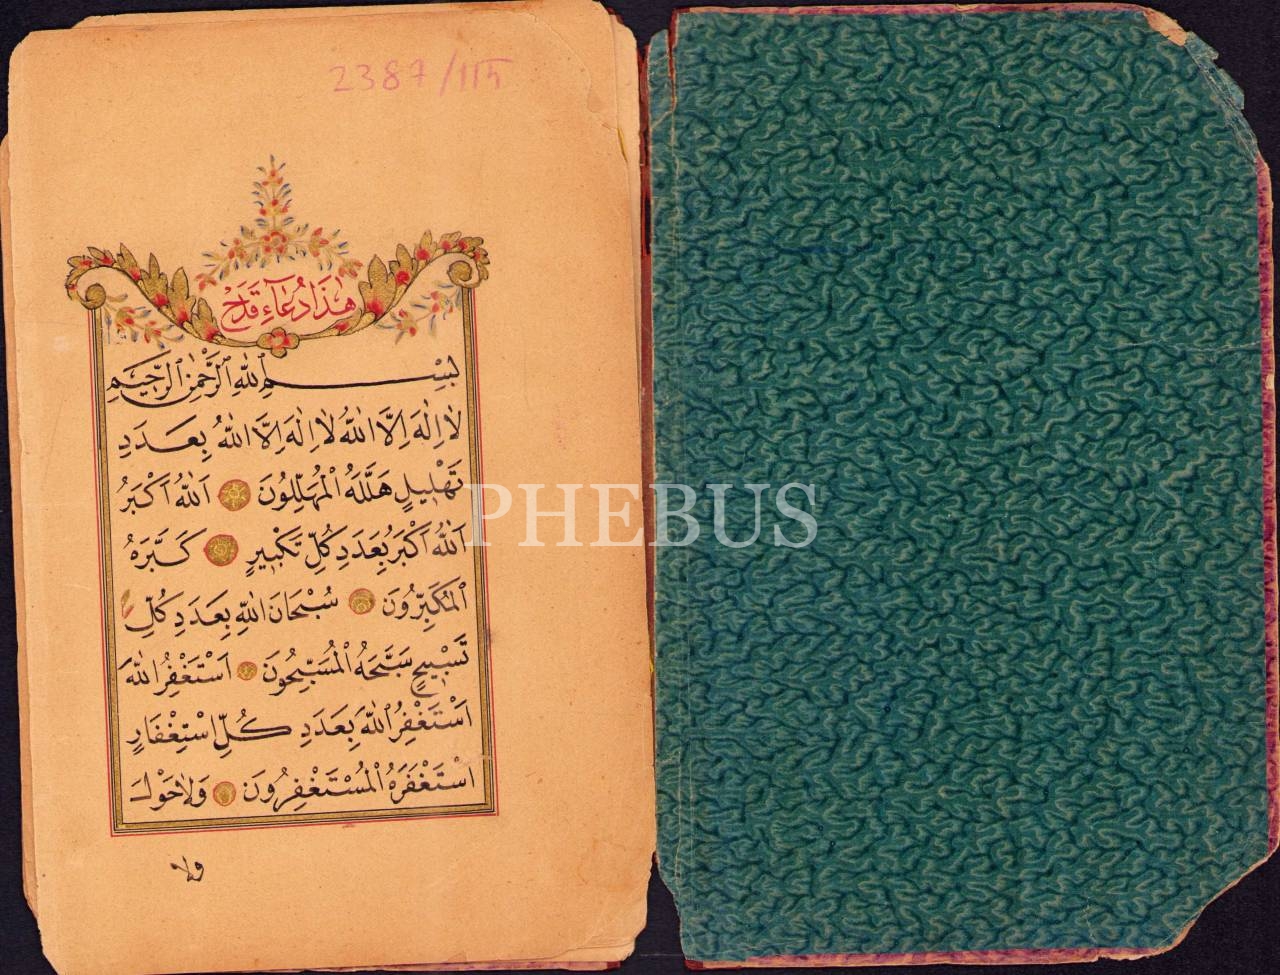 2387/115
هٰذَا دُعَآءِ قَدَحْ
بِسْمِ اللّٰهِ الرَّحْمٰنِ الرَّحِيمِ
لَا اِلٰهَ اِلَّا اللّٰهُ لَا اِلٰهَ اِلَّا اللّٰهُ بِعَدَدِ
تَهْلِيلٍ هَلَّلَهُ الْمُهَلِّلُونَ اَللّٰهُ اَكْبَرُ
اَللّٰهُ اَكْبَرُ بِعَدَدِ كُلِّ تَكْبِيرٍ كَبَّرَهُ
الْمُكَبِّرُونَ سُبْحَانَ اللّٰهِ بِعَدَدِ كُلِّ
تَسْبِيحٍ سَبَّحَهُ الْمُسَبِّحُونَ اَسْتَغْفِرُ اللّٰهَ
اَسْتَغْفِرُ اللّٰهَ بِعَدَدِ كُلِّ اسْتِغْفَارٍ
اسْتَغْفَرَهُ الْمُسْتَغْفِرُونَ وَلَا حَوْلَ
ولا
PHEBUS